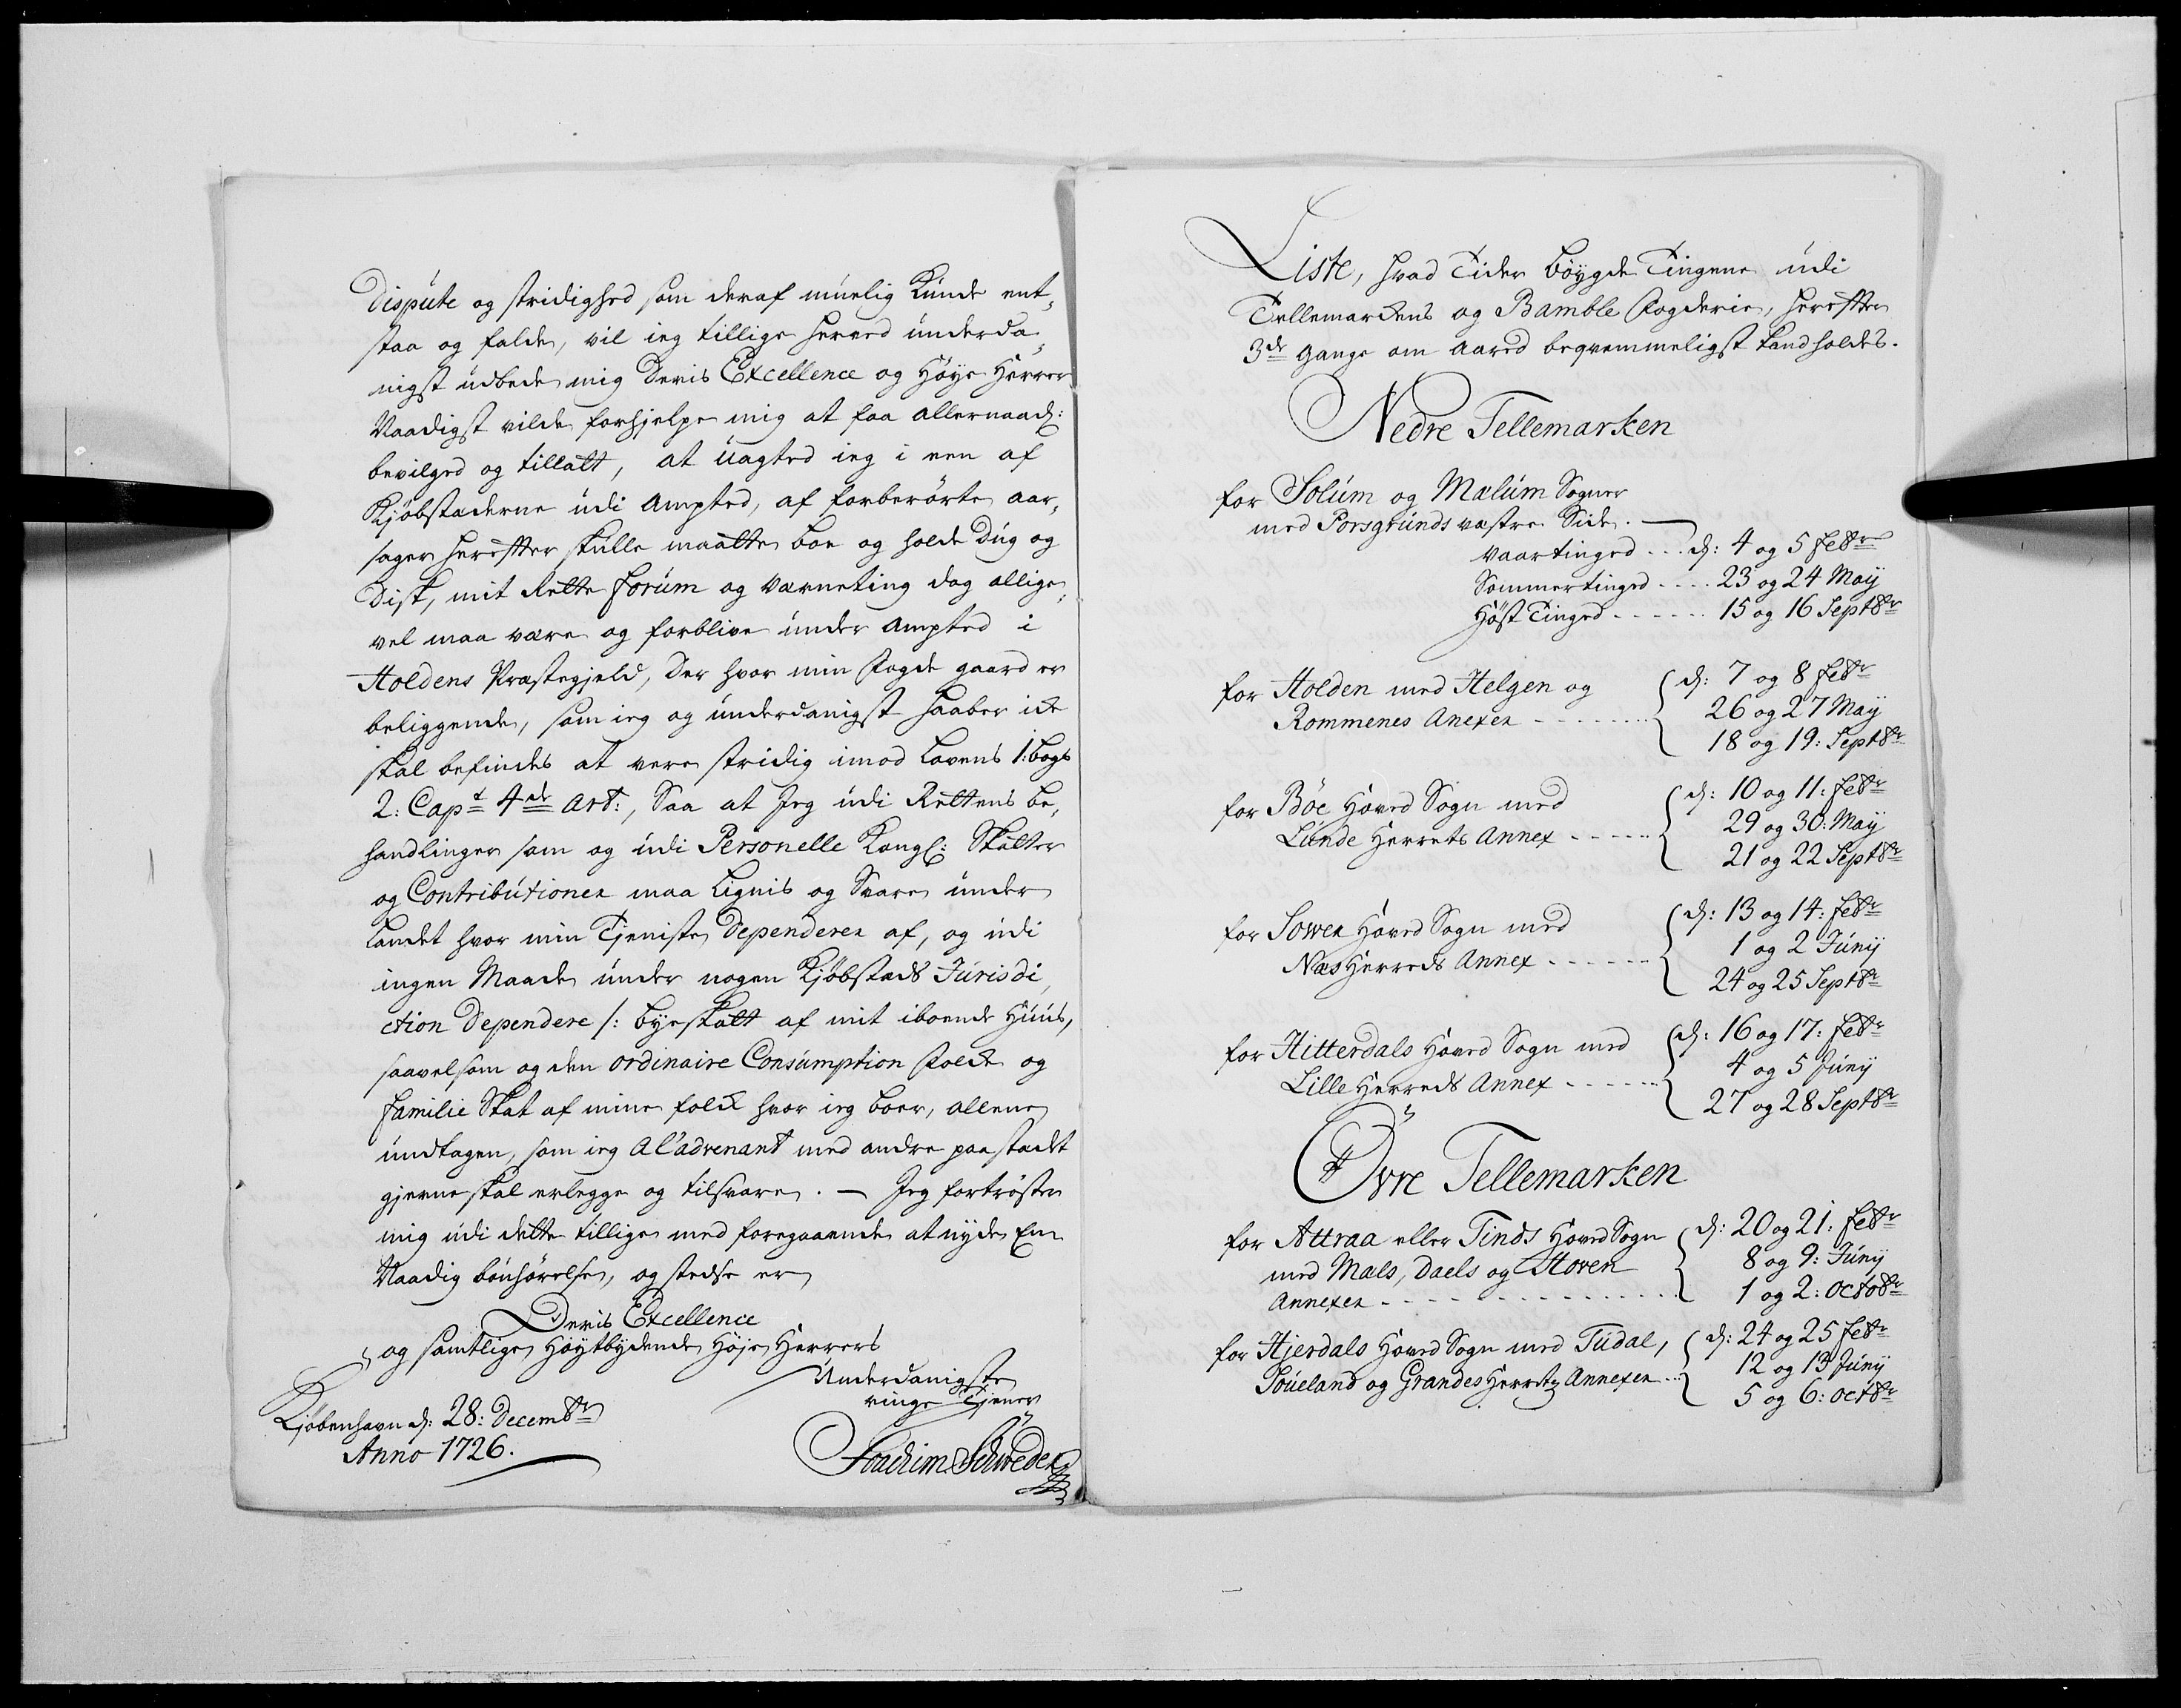 Dispúte og stridighed som deraf múelig kúnde ent,
staa og falde, vil ieg tillige herved únderda,
nigst údbede mig Deris Excellence og Høye Herrer
Naadigst vilde forhjelpe mig at faa allernaad:
bevilged og tilladt, at úagted ieg i een af
Kjøbstæderne údi Ampted, af forberørte aar,
sager herefter skúlle maatte boe og holde Dúg og
Disk, mit Rette forúm og Værneting dog allige,
vel maa være og forblive únder Ampted i
Holdens Præstegjeld, der hvor min Fogde gaard er
beliggende, som ieg og únderdanigst haaber ick
skal befindes at være stridig imod Lovens 1: bogs
2: Capt 4de Art:, Saa at Jeg údi Rettens be,
handlinger som og údi Personelle Kongl: Skatter
og Contribútioner maa Lignis og Svare únder
Landet hvor min Tjeniste Dependerer af, og údi
ingen Maade únder nogen Kjøbstads Júrisdi,
ction Dependere /: byeskatt af mit iboende Húús,
saavelsom og den ordinaire Consúmption Folck og
Familie Skat af mine folck hvor ieg boer, allene
úndtagen, som ieg A l'advenant med andre paa stædet
gjerne skal erlegge og tilsvare. — Jeg fortrøster
mig údi dette tillige med foregaaende at nyde En
Naadig bónhørelse, og stedse er
Deris Excellence
og samtlige Høytbydende Høje Herrers
Underdanigste
ringe Tjener
Kjøbenhavn d: 28: Decembr
Anno 1726.
Joachim Schweder
Liste, hvad Tider Bøygde Tingene údi
Tellemarckens og Bamble Fogderie, herefter
3de gange om aared beqvemmeligst kand holdes.
Nedre Tellemarken
for Solúm og Mælúm Sogner
med Porsgrúnds væstre Side. —
Vaartinged . . . d: 4 og 5 Febr
Sommertinged . . . . 23 og 24 Maÿ
Høst Tinged - - - - - - 15 og 16 Septbr
for Holden med Helgen og
Rommenes Anexer - - - - - - -
d: 7 og 8 Febr
26 og 27 Maÿ
18 og 19: Septbr
for Böe Hoved Sogn med
Lúnde Herrets Annex - - - - -
d: 10 og 11: Febr
29 og 30: Maÿ
21 og 22 Septbr
for Sowen Hoved Sogn med
Næs Herreds Annex - - - - - -
d: 13 og 14: Febr
1 og 2 Júnÿ
24 og 25 Septbr
for Hitterdals Hoved Sogn med
Lille Herreds Annex - - - - - -
d: 16 og 17: Febr
4 og 5 Júnÿ
27 og 28 Septbr
Øvre Tellemarken
for Attraa eller Tinds Hoved Sogn
med Mæls, Daels og Hoven
Annexer - - - - - - - - - - - - - - -
d: 20 og 21: Febr
8 og 9: Júnÿ
1 og 2: Octobr
for Hjerdals Hoved Sogn med Túdal,
Soúeland og Grandes Herritz Annexer . .
d: 24 og 25 Febr
12 og 13 Júnÿ
5 og 6: Octbr